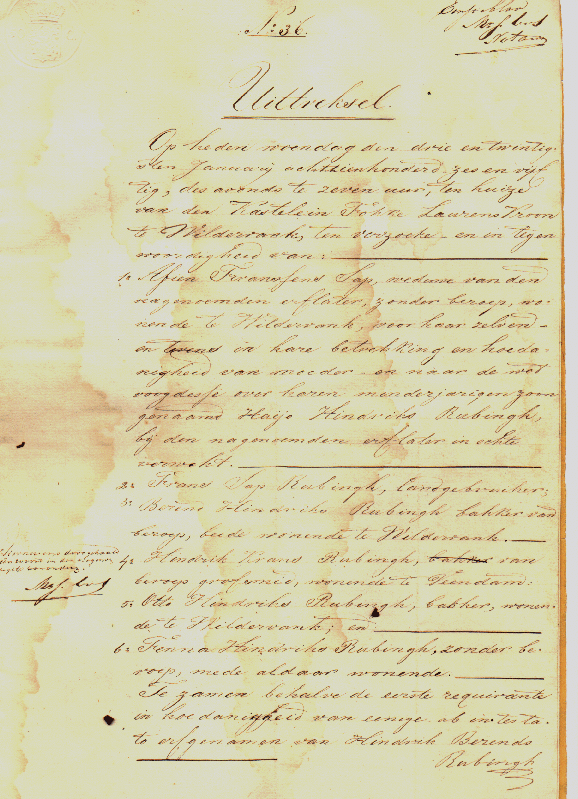 No: 36.
Notaris
Uittreksel.
Op heden woensdag den drie en twintig-
sten Januarij achttienhonderd zes en vijf
tig, des avonds te zeven uur, ten huize
van den Kastelein Fökke Laurens Kroon
te Wildervank, ten verzoeke en in tegen
woordigheid van:
1: Afien Franssens Sap, weduwe van den
nagenoemden erflater, zonder beroep, wo-
nende te Wildervank, voor haar zelven
en tevens in hare betrekking en hoeda-
nigheid van moeder en naar de wet
voogdesse over haren minderjarigen zoon
genaamd Haijo Hindriks Rubingh,
bij den nagenoemden erflater in echte
verwekt.
2: Frans Sap Rubingh, landgebruiker;
3: Berend Hindriks Rubingh bakker van
beroep, beide wonende te Wildervank.
4: Hindrik Frans Rubingh, bakker van
beroep grofsmid, wonende te Veendam:
5: Otto Hindriks Rubingh, bakker, wonen-
de te Wildervank; en
6: Fenna Hindriks Rubingh, zonder be-
roep, mede aldaar wonende.
Te zamen behalve de eerste requirante
in hoedanigheid van eenige ab intesta-
to erfgenamen van Hindrik Berends
Rubingh